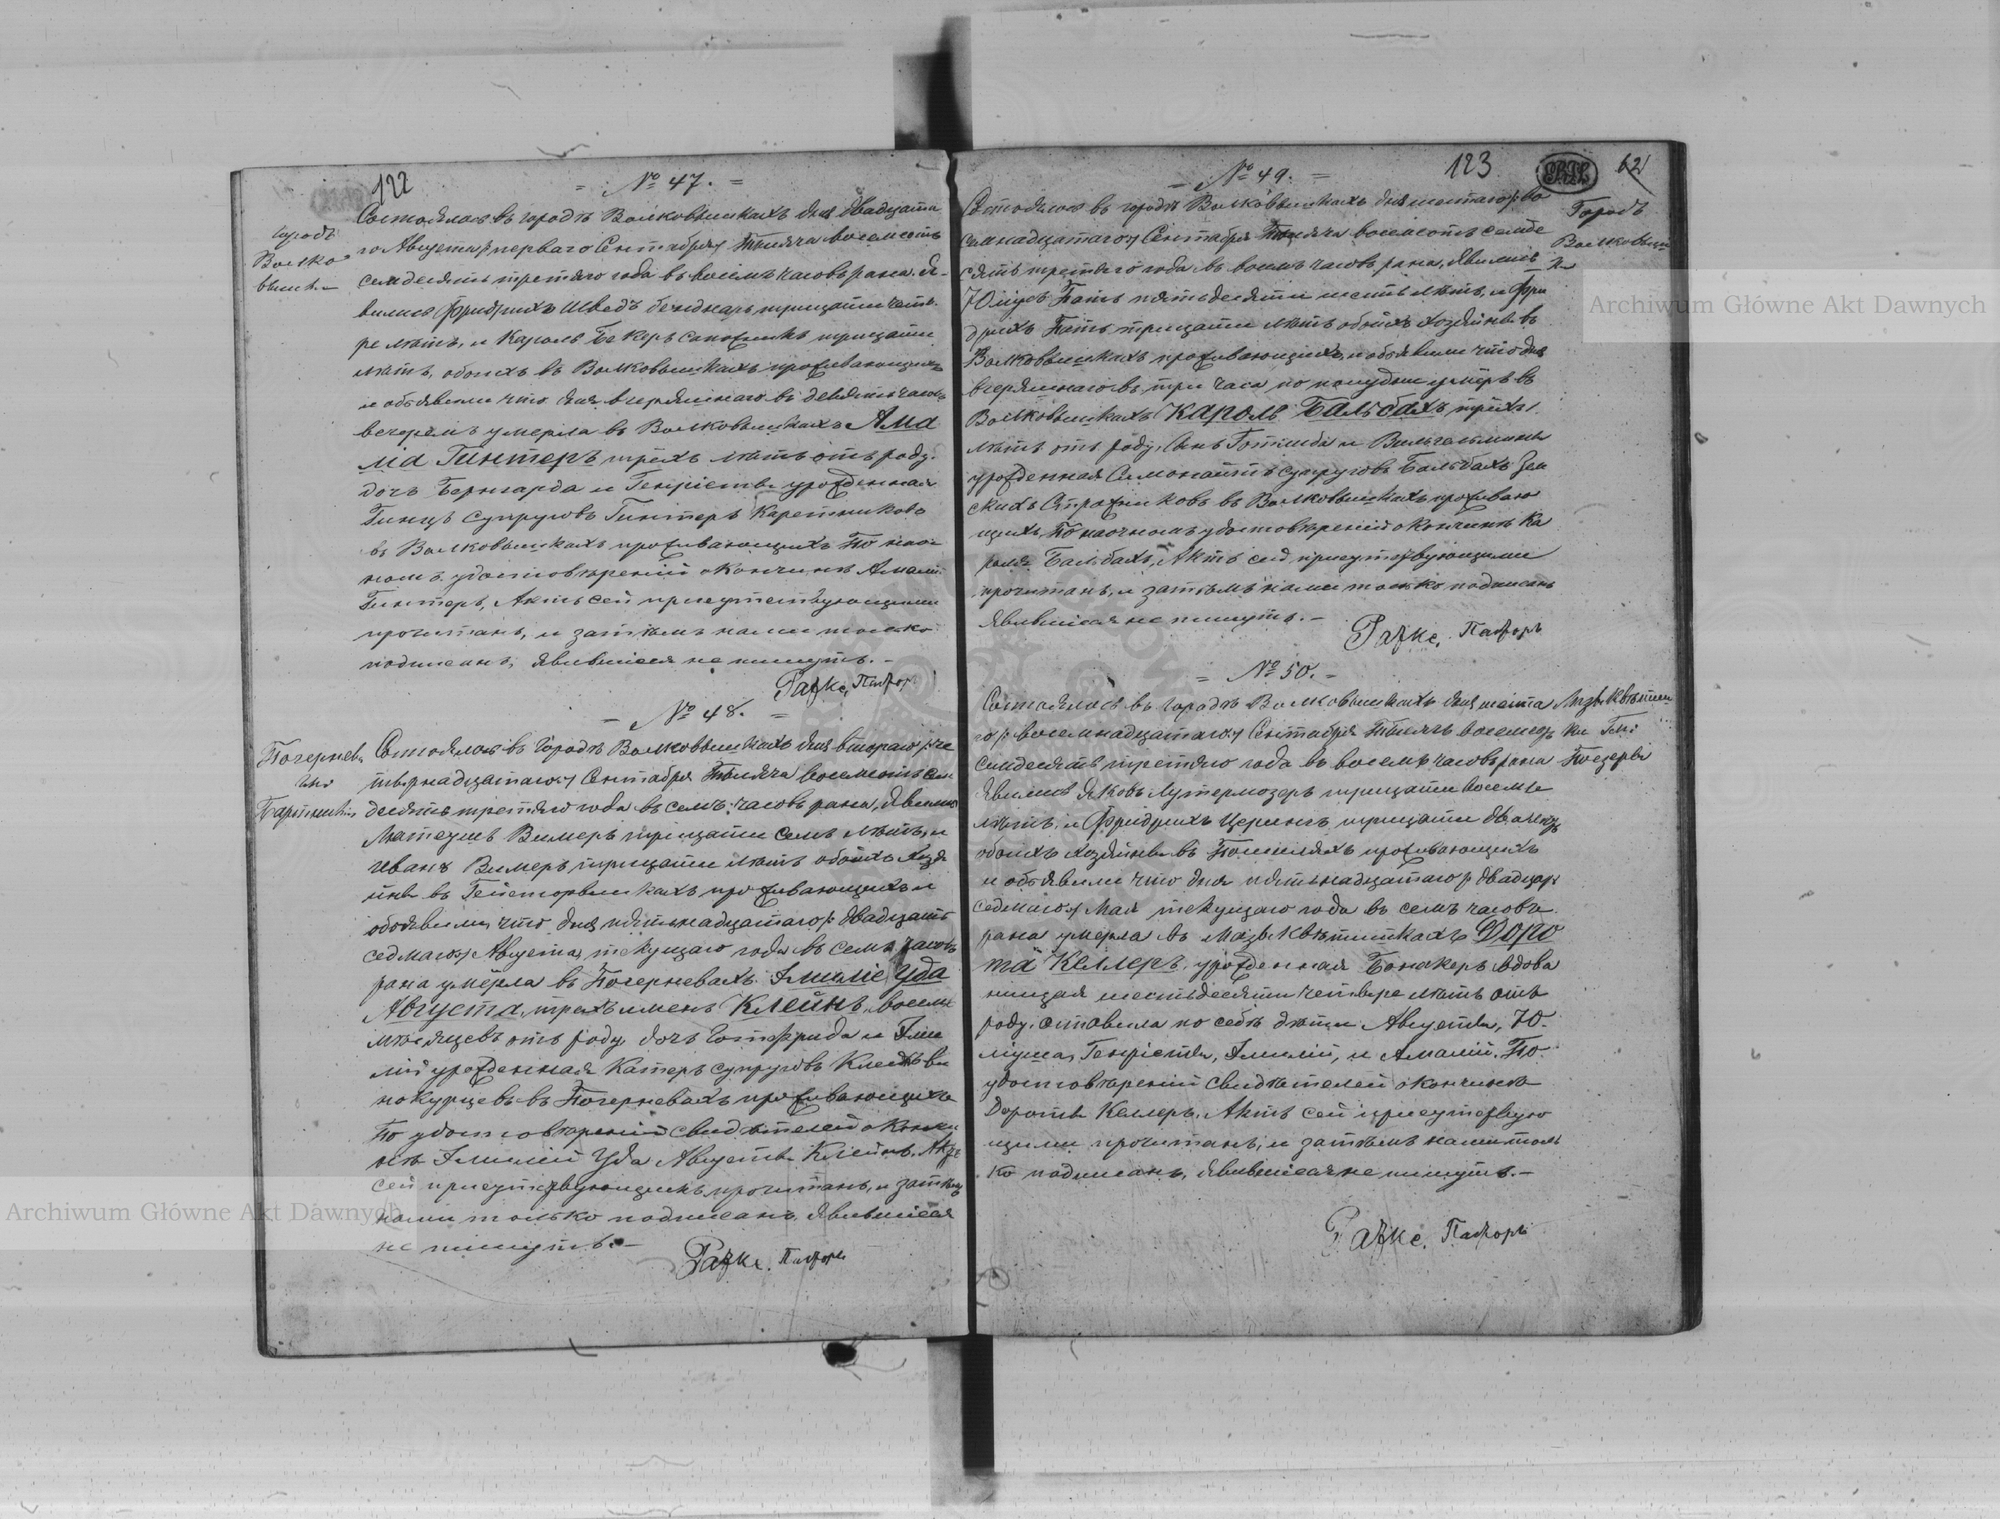 122
№ 47.
городъ
Волко
вышки
Состоялось въ городѣ Волковышкахъ дня двадцата
го Августа /: перваго Сентября :/ тысяча восемсотъ
семдесятъ третяго года въ восемъ часовъ рана. Я-
вились Фридрихъ Шведъ беднарь тридцати четы
ре лѣтъ, и Кароль Бекеръ сапожникъ тридцати
лѣтъ, обоихъ въ Волковышкахъ проживающихъ
и объявили что дня вчеряшнаго въ девять часовъ
вечеромъ умерла въ Волковышкахъ Ама
лія Гинтеръ трехъ лѣтъ отъ роду,
дочъ Бернгарда и Генріеты урожденная
Гинцъ супруговъ Гинтеръ Каретниковъ
въ Волковышкахъ проживающихъ По наоч
номъ удостовѣреніи о кончинѣ Амаліи
Гинтеръ, Актъ сей присутствующими
прочитанъ, и затѣмъ нами только
подписанъ, явившіеся не пишутъ. –
Ражке, Пасторъ
№ 48.
Почерневы
Гми
Состоялось въ городѣ Волковышкахъ дня втораго /: че
тырнадцатаго :/ Сентября тысяча восемсотъ сем
десятъ третяго года въ семъ часовъ рана, явились
Вимеръ тридцати семъ лѣтъ, и
Иванъ Вимеръ тридцати лѣтъ обоихъ хозя
инъ въ проживающихъ и
объявили, что дня пятьнадцатаго /: двадцать
седмаго :/ Августа, текущаго года въ семъ часовъ
рана умерла въ Почерневахъ Эмиліе, Уда
Августа, трехъ именъ Клейнъ, восемь
мѣсяцевъ отъ роду, дочъ Готфрида и Эми
ліи урожденная Катеръ супруговъ Клейнъ вы
въ Почерневахъ проживающихъ
По удостовѣреніи свидѣтелей о кончи
нѣ Эмиліи Уда Августы Клейнъ, Актъ
сей присутствующимъ прочитанъ, и затѣмъ
нами только подписанъ, явившіеся
не пишутъ. –
Ражке. Пасторъ
123
62
№ 49.
Городъ
Волковыш
ки
Состоялось въ городѣ Волковышкахъ дня шестаго /: во
семнадцатаго :/ Сентября тысяча восемсотъ семде
сятъ третяго года въ восемъ часовъ рана, явились
Юліусъ Патъ пятьдесяти шесть лѣтъ, и Фри
дрихъ Патъ тридцати лѣтъ обоихъ хозяинъ въ
Волковышкахъ проживающихъ, и объявили что дня
вчеряшнаго въ три часа по полудни умеръ въ
Волковышкахъ Кароль Бальбахъ трехъ
лѣтъ отъ роду, сынъ Готлиба и Вильгельмины
урожденная Симонаитъ супруговъ Бальбахъ Зем
скихъ Стражниковъ въ Волковышкахъ проживаю
щихъ, По наочномъ удостовѣреніи о кончинѣ Ка
роля Бальбахъ, Актъ сей присутствующими
прочитанъ, и затѣмъ нами только подписанъ
явившіеся не пишутъ. –
Ражке, Пасторъ
№ 50.
ки Гми:
Состоялось въ городѣ Волковышкахъ дня шеста
го /: восемнадцатаго :/ Сентября тысяча восемсотъ
семдесятъ третяго года въ восемъ часовъ рана
явились Яковъ Лутермозеръ тридцати восемь
лѣтъ, и Фридрихъ Церингъ тридцати два лѣтъ
обоихъ хозяинъ въ проживающихъ
и объявили что дня пятьнадцатаго /: двадцать
седмаго :/ Мая текущаго года въ семъ часовъ
рана умерла въ Доро
та Келлеръ, урожденная Бонакеръ вдова
нищая шестьдесяти четыре лѣтъ отъ
роду, оставила по себѣ дѣти Августы, Ю-
ліуша, Генріеты, Эмиліи, и Амаліи. По
удостовѣреніи свидѣтелей о кончинѣ
Дороты Келлеръ, Актъ сей присутствую
щими прочитанъ, и затѣмъ нами толь
ко подписанъ, явившіеся не пишутъ. –
Ражке. Пасторъ
Archiwum Główne Akt Dawnych
Archiwum Główne Akt Dawnych